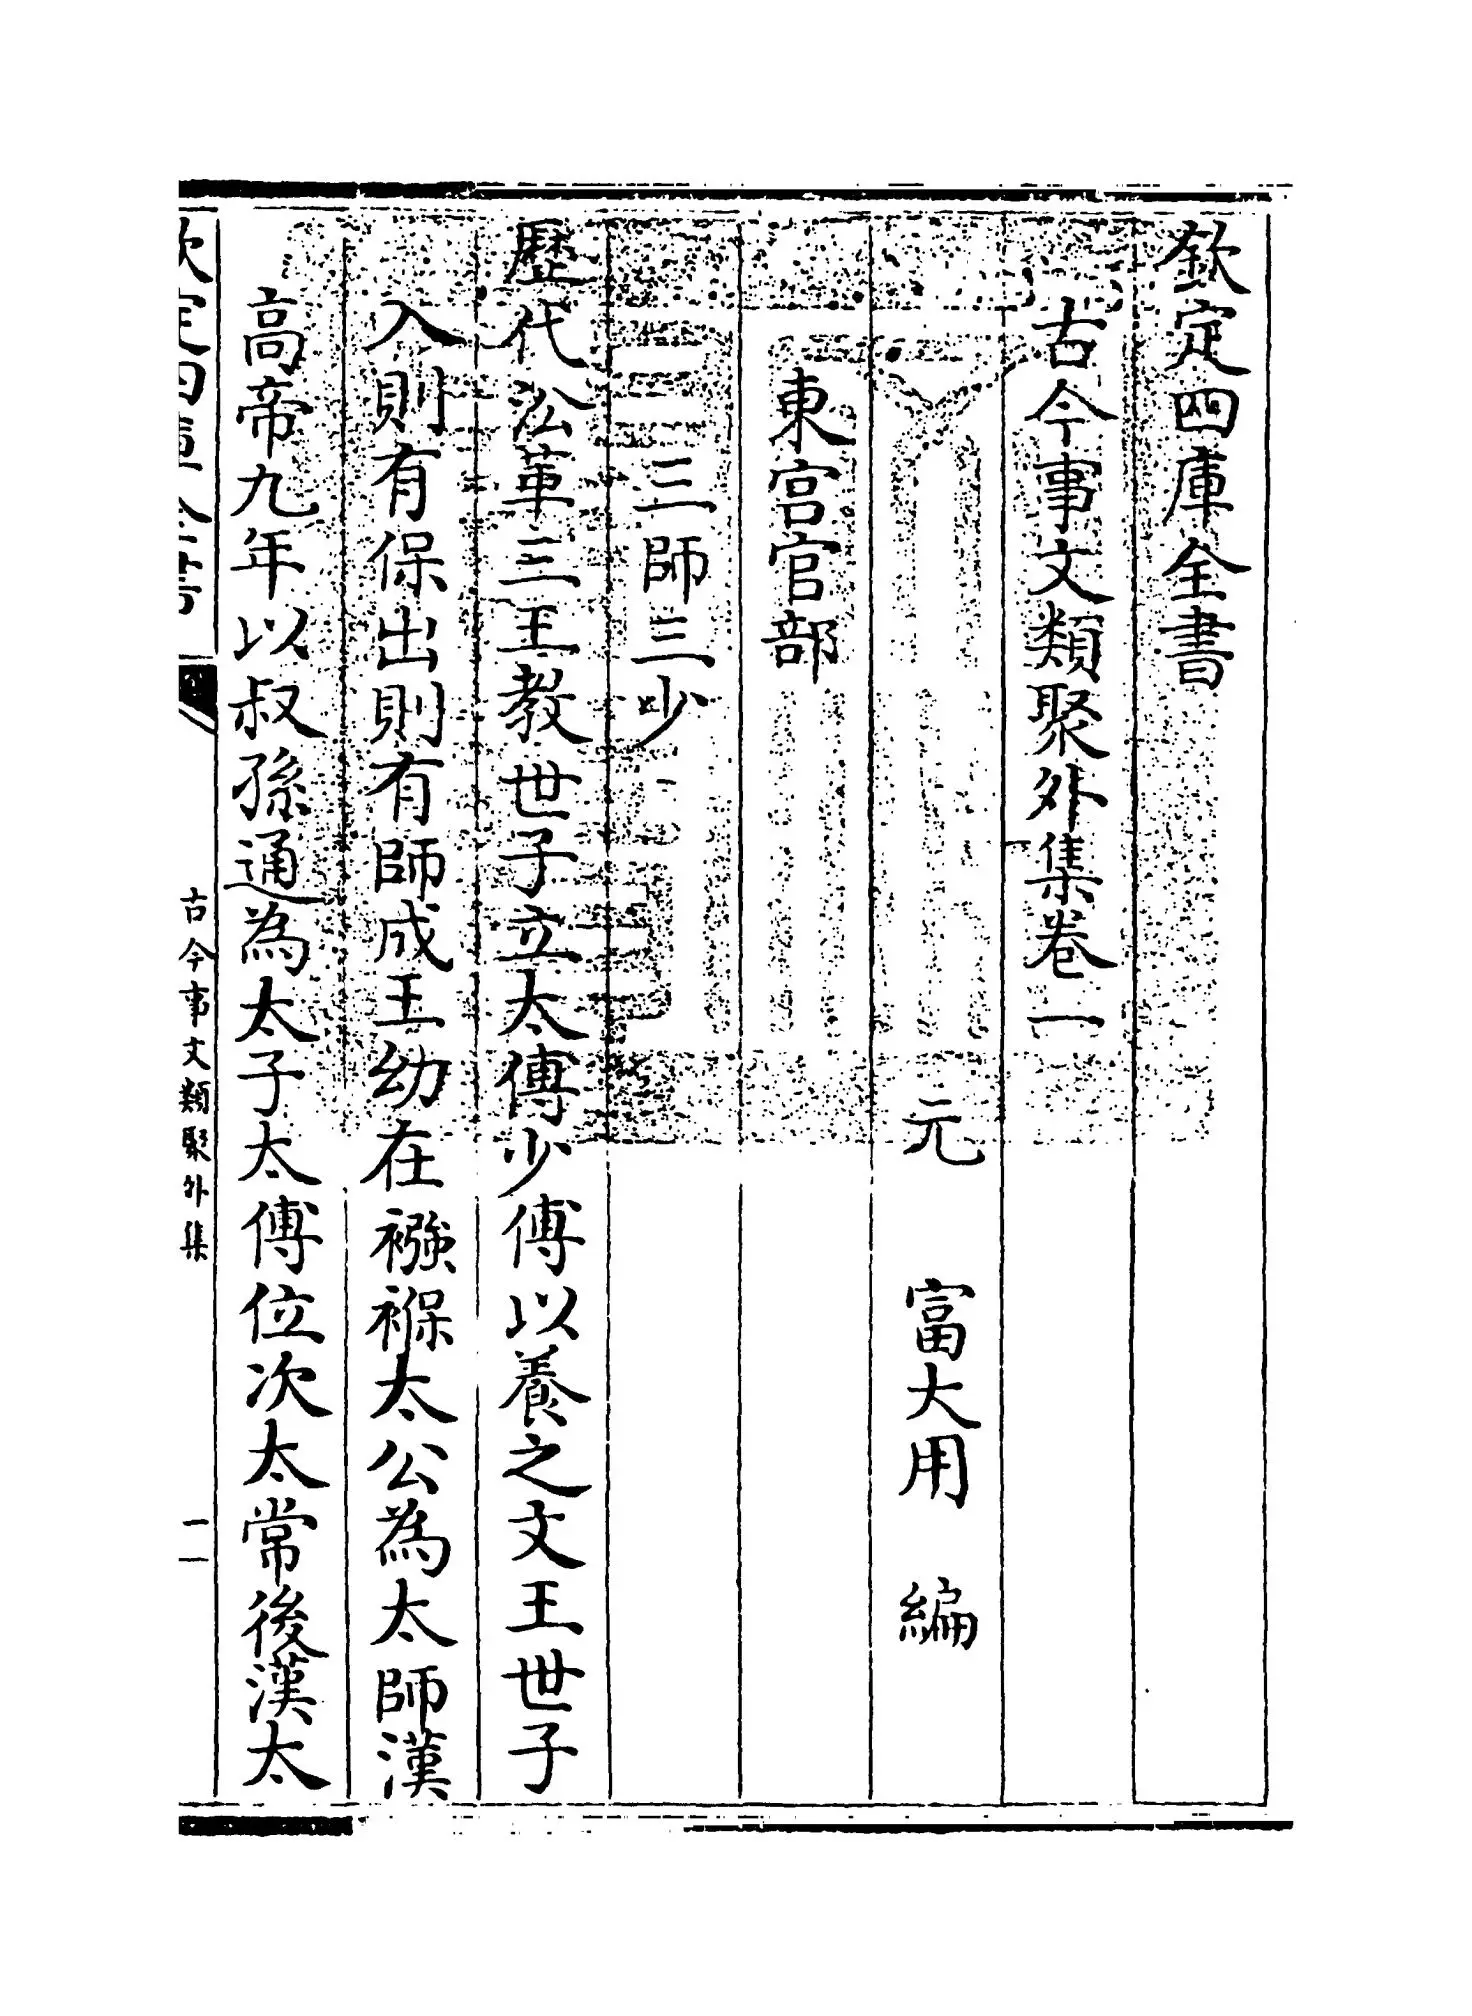 欽定四庫全書
古今事文類聚外集卷一
元 富大用 編
東宮官部
三師三少
歷代沿革三王教世子立太傅少傅以養之文王世子
入則有保出則有師成王幼在襁褓太公為太師漢
高帝九年以叔孫通為太子太傅位次太常後漢太
欽定四庫全書
古今事文類聚外集
一